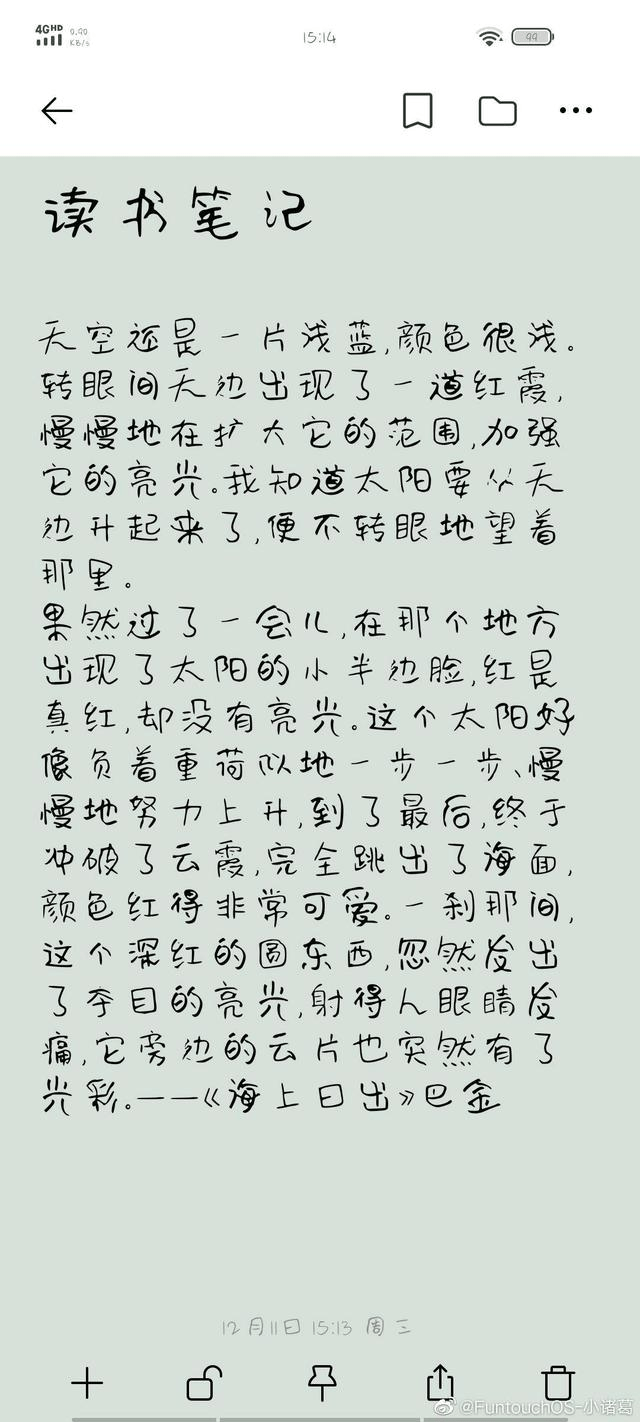 4G HD 0.90 KB/s 15:14 99
读书笔记
天空还是一片浅蓝,颜色很浅。
转眼间天边出现了一道红霞,
慢慢地在扩大它的范围,加强
它的亮光。我知道太阳要从天
边升起来了,便不转眼地望着
那里。
果然过了一会儿,在那个地方
出现了太阳的小半边脸,红是
真红,却没有亮光。这个太阳好
像负着重荷似地一步一步、慢
慢地努力上升,到了最后,终于
冲破了云霞,完全跳出了海面,
颜色红得非常可爱。一刹那间,
这个深红的圆东西,忽然发出
了夺目的亮光,射得人眼睛发
痛,它旁边的云片也突然有了
光彩。——《海上日出》巴金
12月11日 15:13 周三
@FuntouchOS-小诸葛